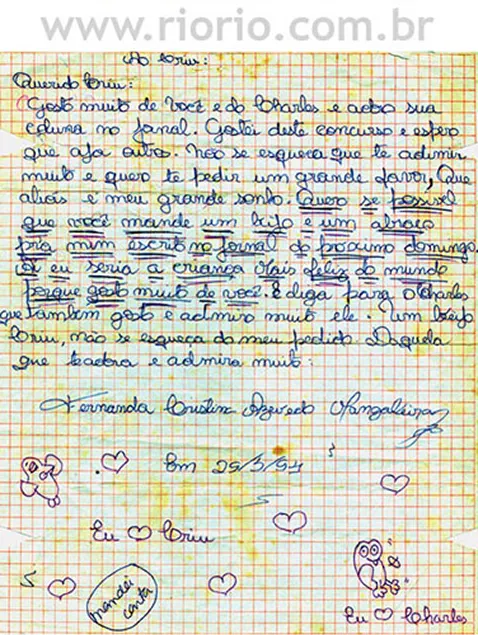 www.riorio.com.br
Ao Criu:
Querido Criu:
Gosto muito de você e do Charles e adoro sua
coluna no jornal. Gostei deste concurso e espero
que aja outros. Não se esqueça que te admiro
muito e quero te pedir um grande favor, que
aliais é meu grande sonho. Quero se possivel
que você mande um beijo e um abraço
pra mim escrito no jornal do proximo domingo.
eu seria a criança mais feliz do mundo
porque gosto muito de você. E diga para o Charles
que também gosto e admiro muito ele. Um beijo
Criu, não se esqueça do meu pedido. Daquela
que te adora e admira muito:
Fernanda Cristina Azevedo
Em 25/3/91
Eu ♡ Criu
mandei carta
Eu ♡ Charles